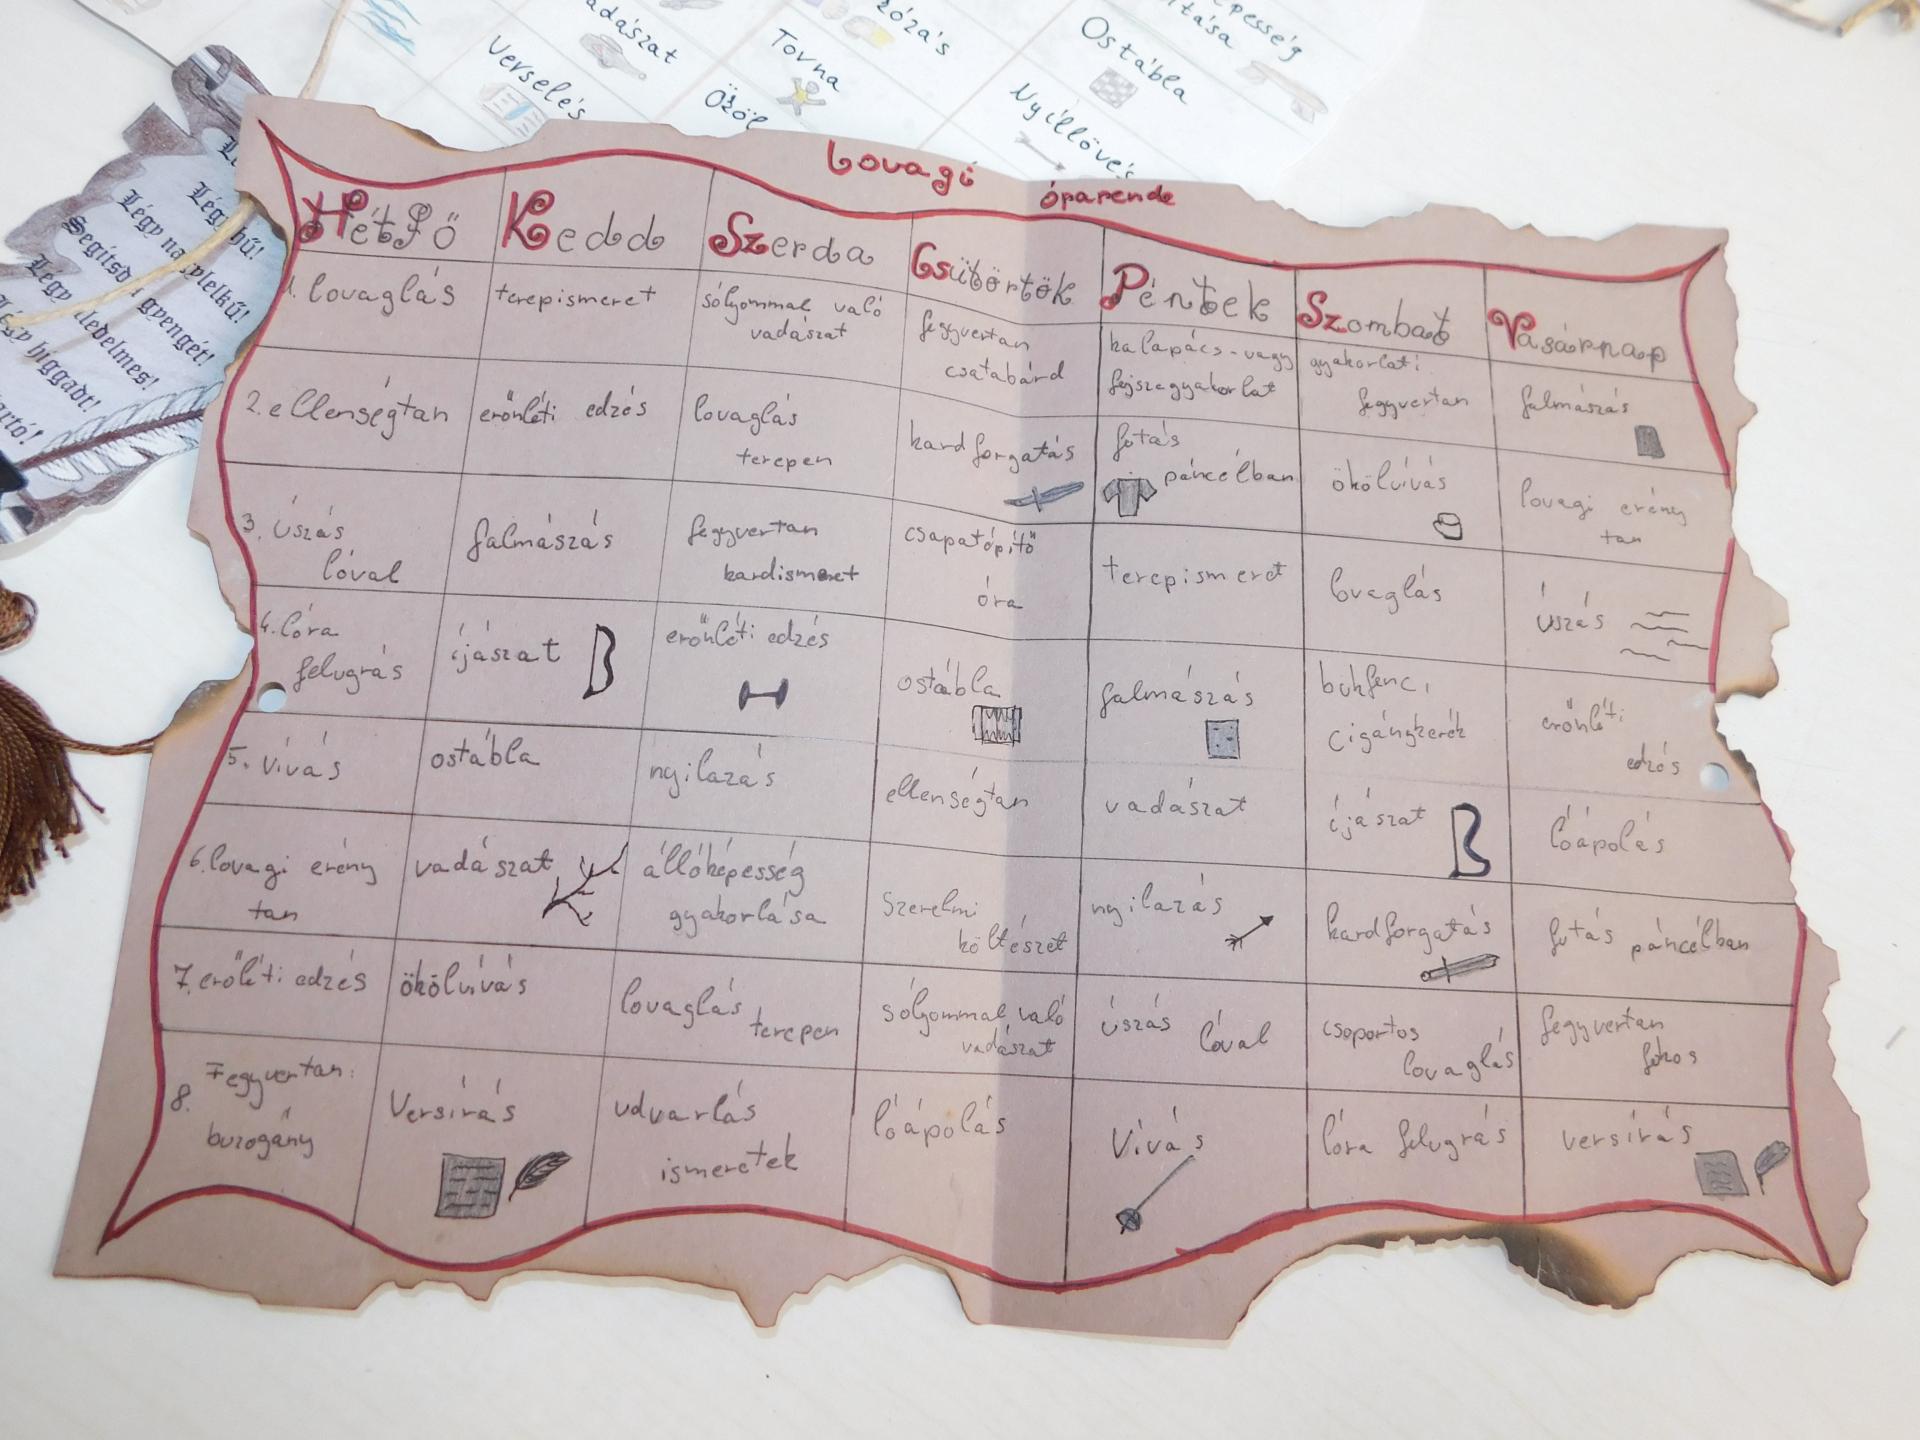 adászat
Verselés
Tovna
Ostábla
Nyíllövés
Légy hű!
Segítsd a gyengét!
Légy higgadt!
Lovagi órarende
Hétfő Kedd Szerda Csütörtök Péntek Szombat Vasárnap
1. lovaglás
terepismeret
sólyommal való
vadászat
fegyvertan
csatabárd
kalapács-vagy
fejszegyakorlat
gyakorlati
fegyvertan
falmászás
2. ellenségtan
erőnléti edzés
lovaglás
terepen
kardforgatás
futás
páncélban
ökölvívás
lovagi erény
tan
3. úszás
lóval
falmászás
fegyvertan
kardismeret
csapatópítő
óra
terepismeret
lovaglás
úszás
4. lóra
felugrás
íjászat
erőnléti edzés
ostábla
falmászás
bukfenc,
cigánykerék
erőnléti
edzés
5. vívás
ostábla
nyilazás
ellenségtan
vadászat
íjászat
lóápolás
6. lovagi erény
tan
vadászat
állóképesség
gyakorlása
szerelmi
költészet
nyilazás
kardforgatás
futás páncélban
7. erőléti edzés
ökölvívás
lovaglás
terepen
sólyommal való
vadászat
úszás lóval
csoportos
lovaglás
fegyvertan
fokos
8. Fegyvertan:
buzogány
Versírás
udvarlás
ismeretek
lóápolás
Vívás
lóra felugrás
versírás